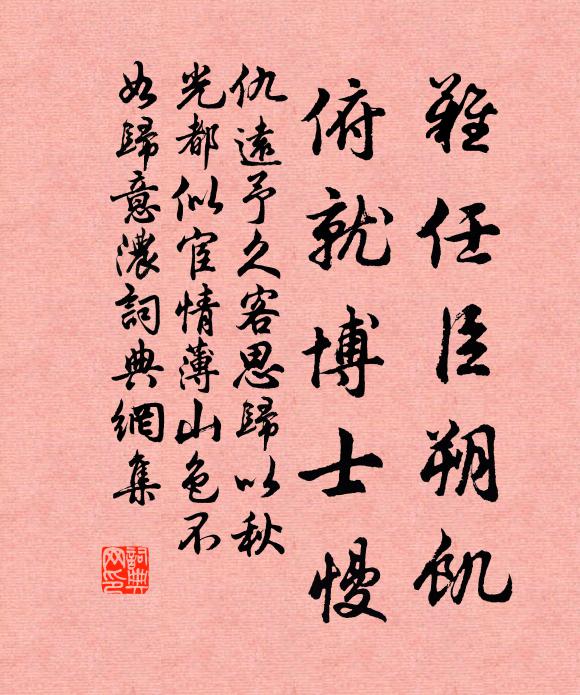 難任臣朔飢
俯就博士慢
仇遠予久客思歸以秋
光都似宦情薄山色不
如歸意濃詞典網集
詞典
网印